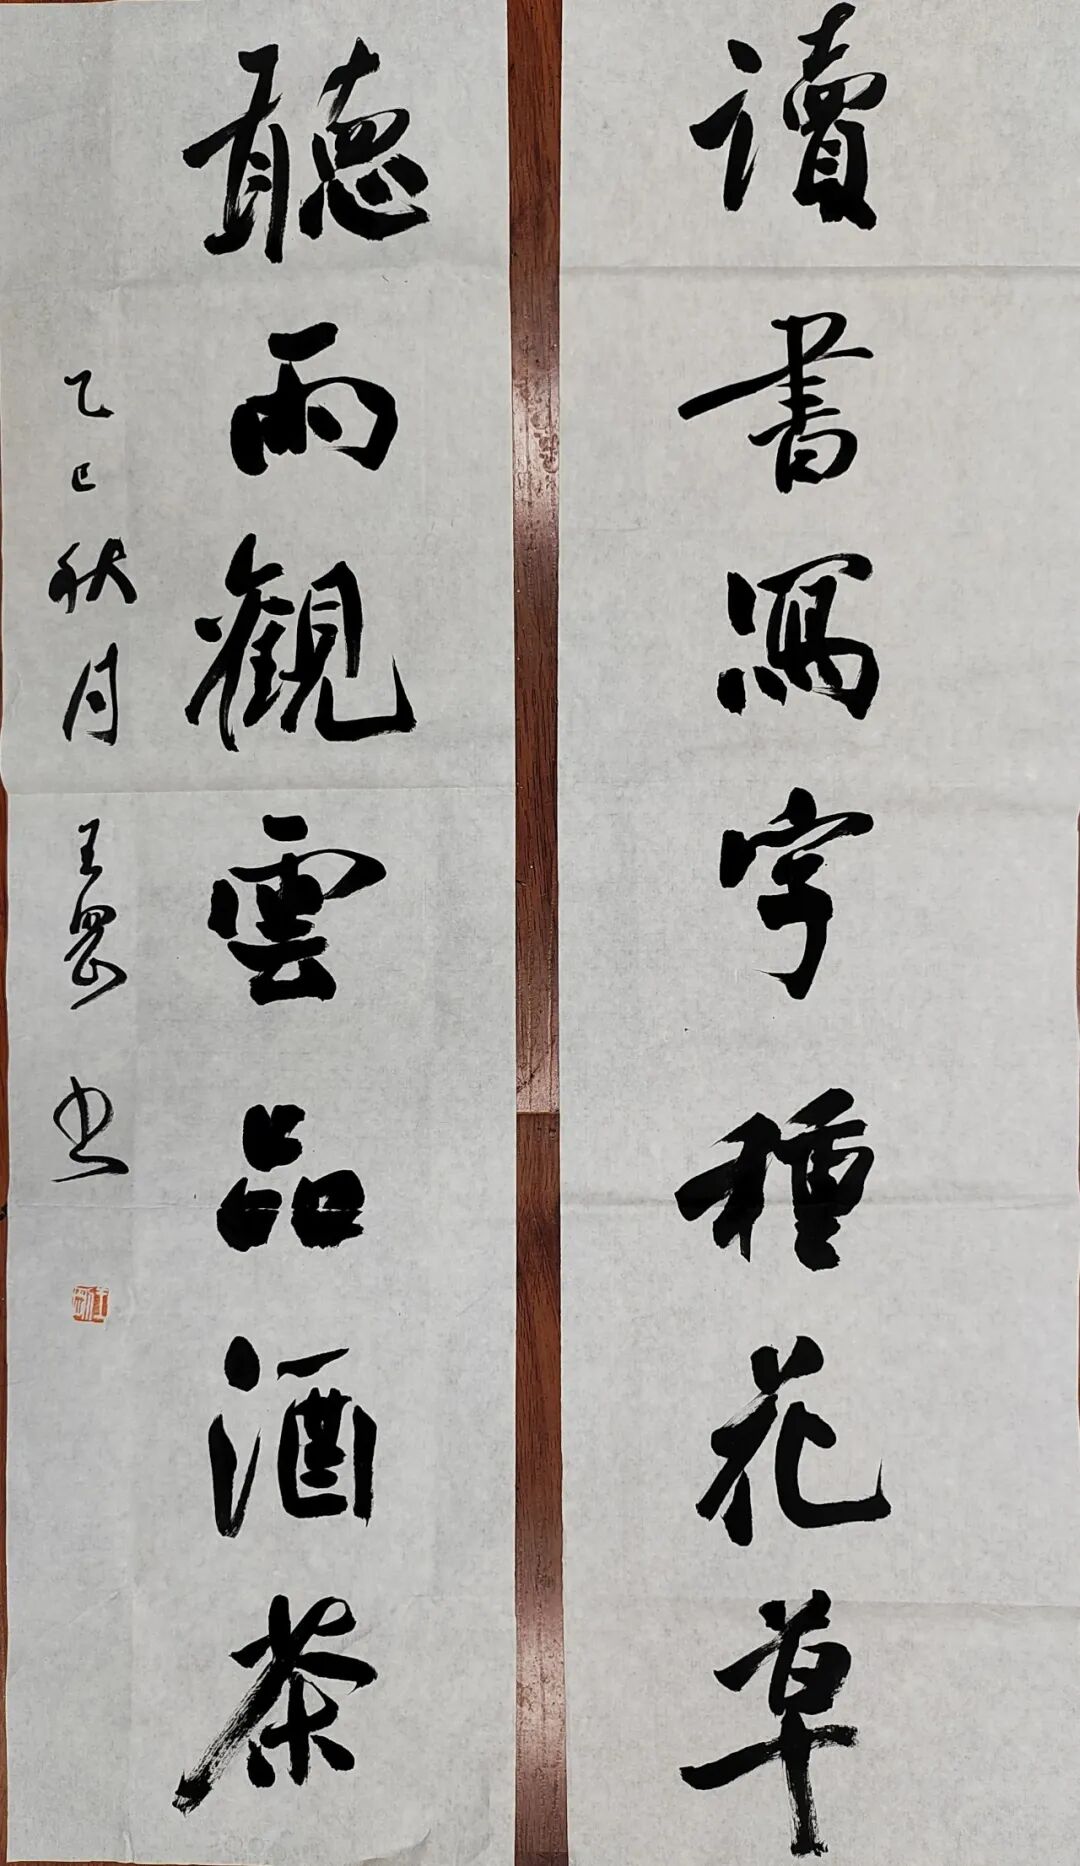 讀書寫字種花草
聽雨觀雲品酒茶
乙巳秋月 王 书